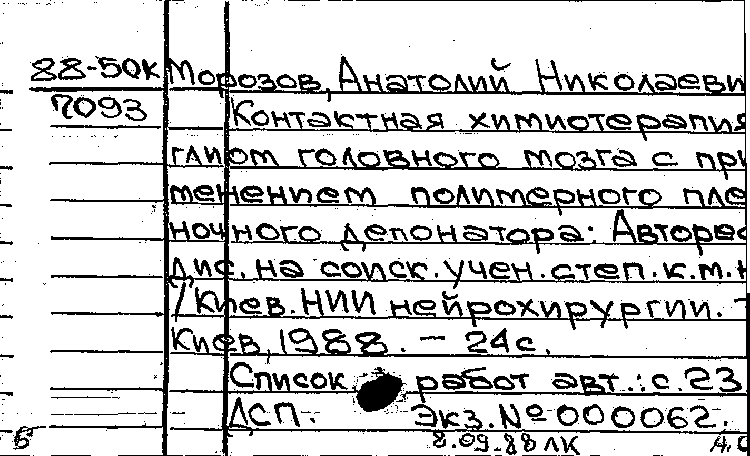 88-50К Морозов, Анатолий Николаеви
7093 Контактная химиотерапия
глиом головного мозга с при
менением полимерного пле
ночного депонатора: Авторе
дис. на соиск. учен. степ. к.м.н
/Киев. НИИ нейрохирургии. –
Киев, 1988. – 24с.
Список работ авт.: с. 23
ДСП. Экз. № 000062.
Б 8.09.88 ЛК А.С